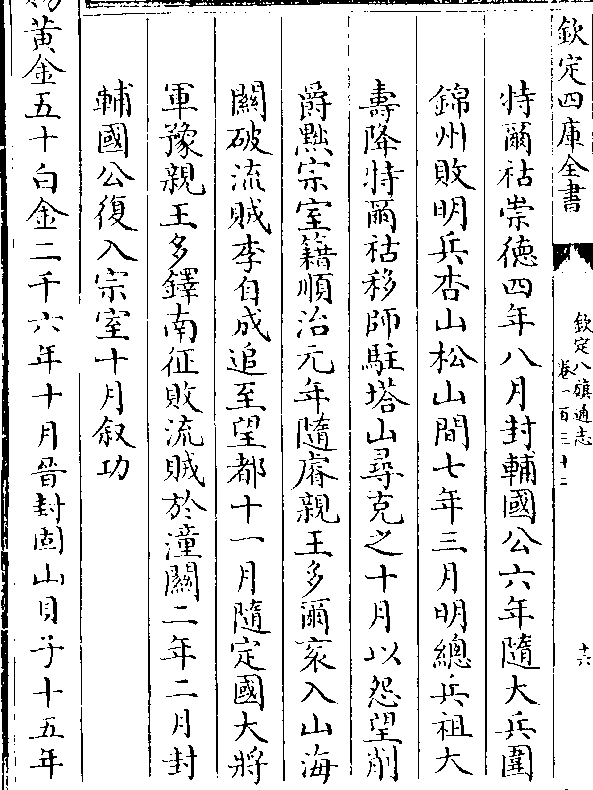 欽定四庫全書
欽定八旗通志
卷一百三十二
十六
特爾祜崇德四年八月封輔國公六年隨大兵圍
錦州敗明兵杏山松山間七年三月明總兵祖大
壽降特爾祜移師駐塔山尋克之十月以怨望削
爵黜宗室籍順治元年隨睿親王多爾衮入山海
關破流賊李自成追至望都十一月隨定國大將
軍豫親王多鐸南征敗流賊於潼關二年二月封
輔國公復入宗室十月叙功
賜黃金五十白金二千六年十月晉封固山貝子十五年